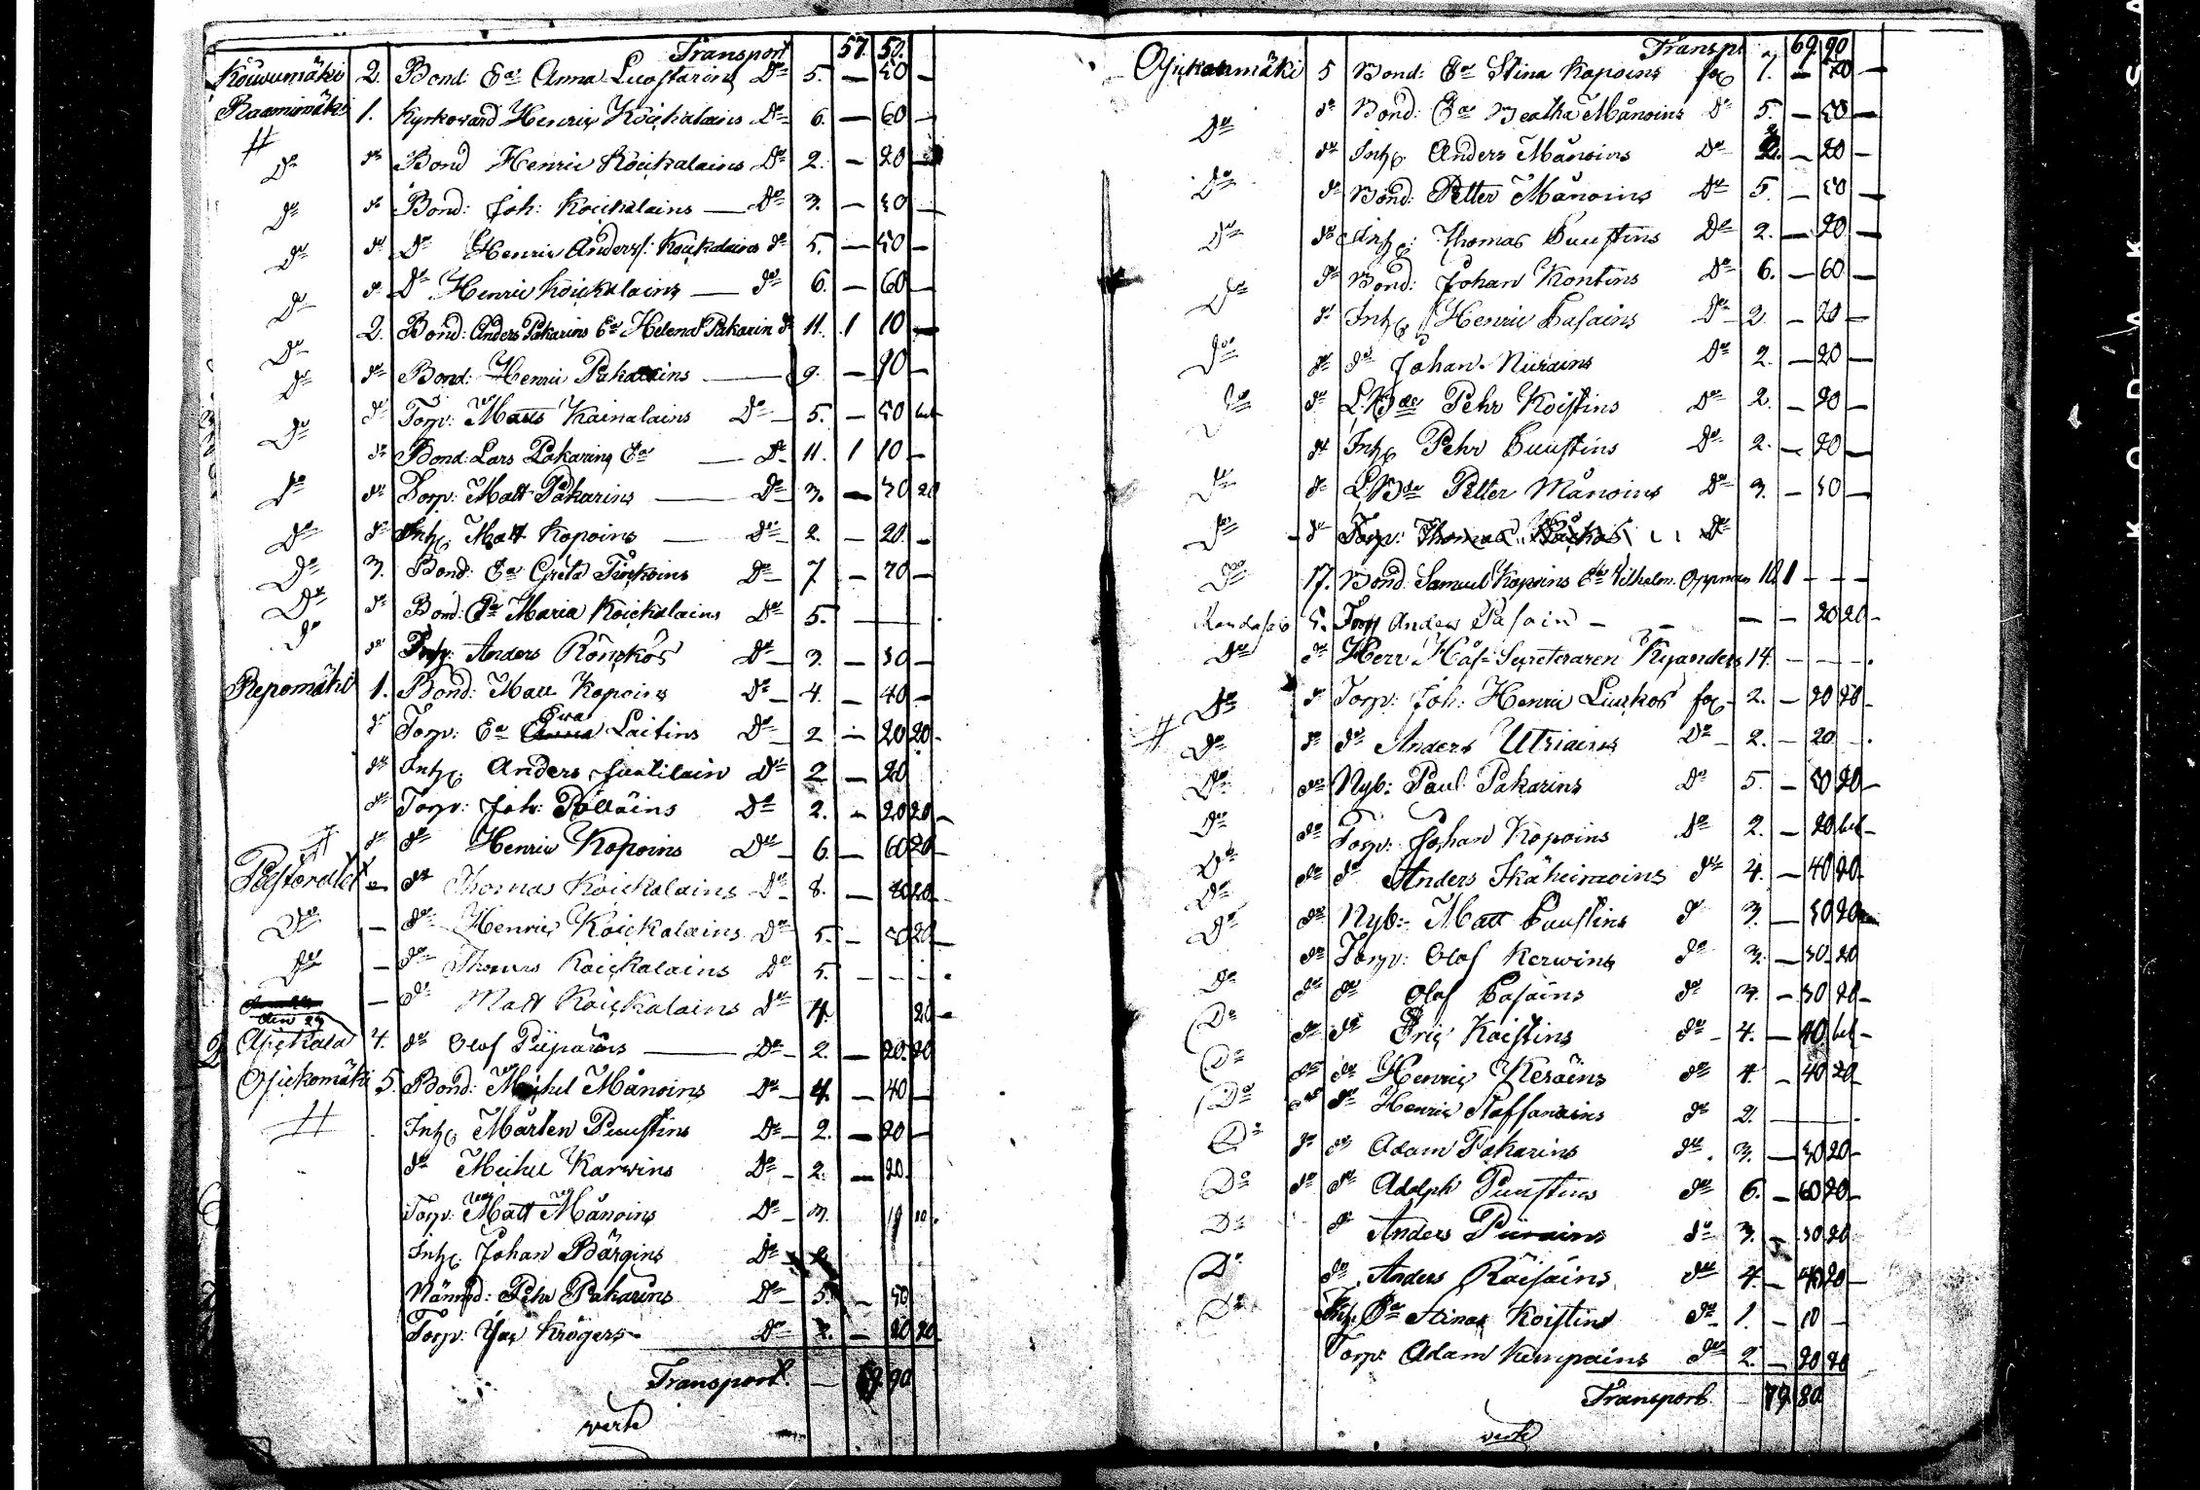 Transport 57. 50.
Kouvumäki 2. Bond: Ea Anna Luostarins Do 5. — 50 —
Raamimäki 1. Kyrkovärd Henric Koickalains Do 6. — 60 —
Do do Bond Henric Koickalains Do 2. — 20 —
Do do Bond: Joh: Koickalains — Do 3. — 30 —
Do do Do Henric Anderss: Koickalains do 5. — 50 —
Do do Do Henric Koickalains — do 6. — 60 —
Do 2. Bond: Anders Pakarins Ea Helena Pakarin do 11. 1 10 —
Do do Bond: Henric Pakarins — 9. — 90 —
Do do Torp: Matts Kainalains Do — 5. — 50 bet
do Bond: Lars Pakarins Ea — Do 11. 1 10 —
Do do Torp: Matt Pakarins — Do 3. — 30 20
Do do Inh. Matt Kopoins — Do 2. — 20. —
Do 3. Bond: Ea Greta Do 7 — 70 —
Do do Bond: Ea Maria Koickalains Do 5. —
Do do Inh: Anders Rönckös Do 3. — 30 —
Repomäki 1. Bond: Matt Kopoins Do 4. — 40 —
do Torp: Ea Eva Laitins Do 2 — 20 20 -
do Inh. Anders Do 2 — 20
do Torp: Joh: Pölläins Do 2. — 20 20 —
do do Henric Kopoins Do 6. — 60 20 —
Pastoratet — do Thomas Koickalains Do 8. — 80 20 -
Do — do Henric Koickalains Do 5. — 50 20 —
Do — do Thomas Koickalains Do 5. — - - .
— do Matt Koickalains Do 4. 20 —
Apickala 4. do Olof — Do 2. — 20. 20
Ojickomäki 5. Bond: Michel Mänoins Do 4. — 40 —
Inh. Mårten Puustins Do 2. — 20 —
do Michel Karvins Do 2. — 20.
Torp: Matt Mänoins Do 3.
Inh. Johan Bärgins Do
Nämnd: Pehr Pakarins Do 5. — 50
Torp: Krögers Do 2. — 20 20
Transport. — 69 90
verte
Transpt 69. 90
Ojickomäki 5 Bond: Ea Stina Kopoins 7. — 70 —
Do do Bond: Ea Beatha Mänoins Do 5. — 50 —
do Inh. Anders Mänoins Do 2. — 20 —
Do do Bond: Petter Mänoins Do 5. — 50 —
Do do Inh: Thomas Puustins Do 2. — 20 —
Do do Bond: Johan Kontins Do 6. — 60 —
do Inh. Henric Pasains Do 2. — 20 —
Do do do Johan Do 2. — 20 —
Do do Pehr Koistins Do 2. — 20 —
do Inh. Pehr Puustins Do 2. — 20 —
Do do Petter Mänoins Do 3. — 30 —
Do do Torp: Thomas Do
Do 17. Bond: Samuel Kopoins Vilhelm. Oppman 10. 1 - - -
5. Torp Anders Pasain — — — 20 20 -
Do do Herr Secreteraren Kyanders 14. - - - .
Do do Torp: Joh: Henric 2. — 20 20 -
Do do do Anders Utriains Do 2. — 20 - .
Do do Nyb: Paul Pakarins Do 5. — 50 20 —
Do do Torp: Johan Kopoins Do 2. — 20 bet —
Do do do Anders do 4. — 40 20
Do do Nyb: Matt Puustins do 3. — 30 20
Do do Torp: Olof Kerwins do 3. — 30 20
Do do do Olof Pasains do 3. — 30 20 -
Do do do Eric Koistins do 4. — 40 bet —
Do do do Henric Keräins do 4. — 40 20
Do do do Henric Staffanains do 2. — .
Do do do Adam Pakarins do. 3. — 30 20 —
Do do do Adolph Puustins do 6. — 60 20 —
Do do Anders do 3. — 30 20
Do do Anders Räisäins do 4. — 40 20 —
Do Inh: Ea Stina Koistins do 1. — 10 —
Torp: Adam Kimpains do 2. — 20 20
Transport. 79. 80
verte